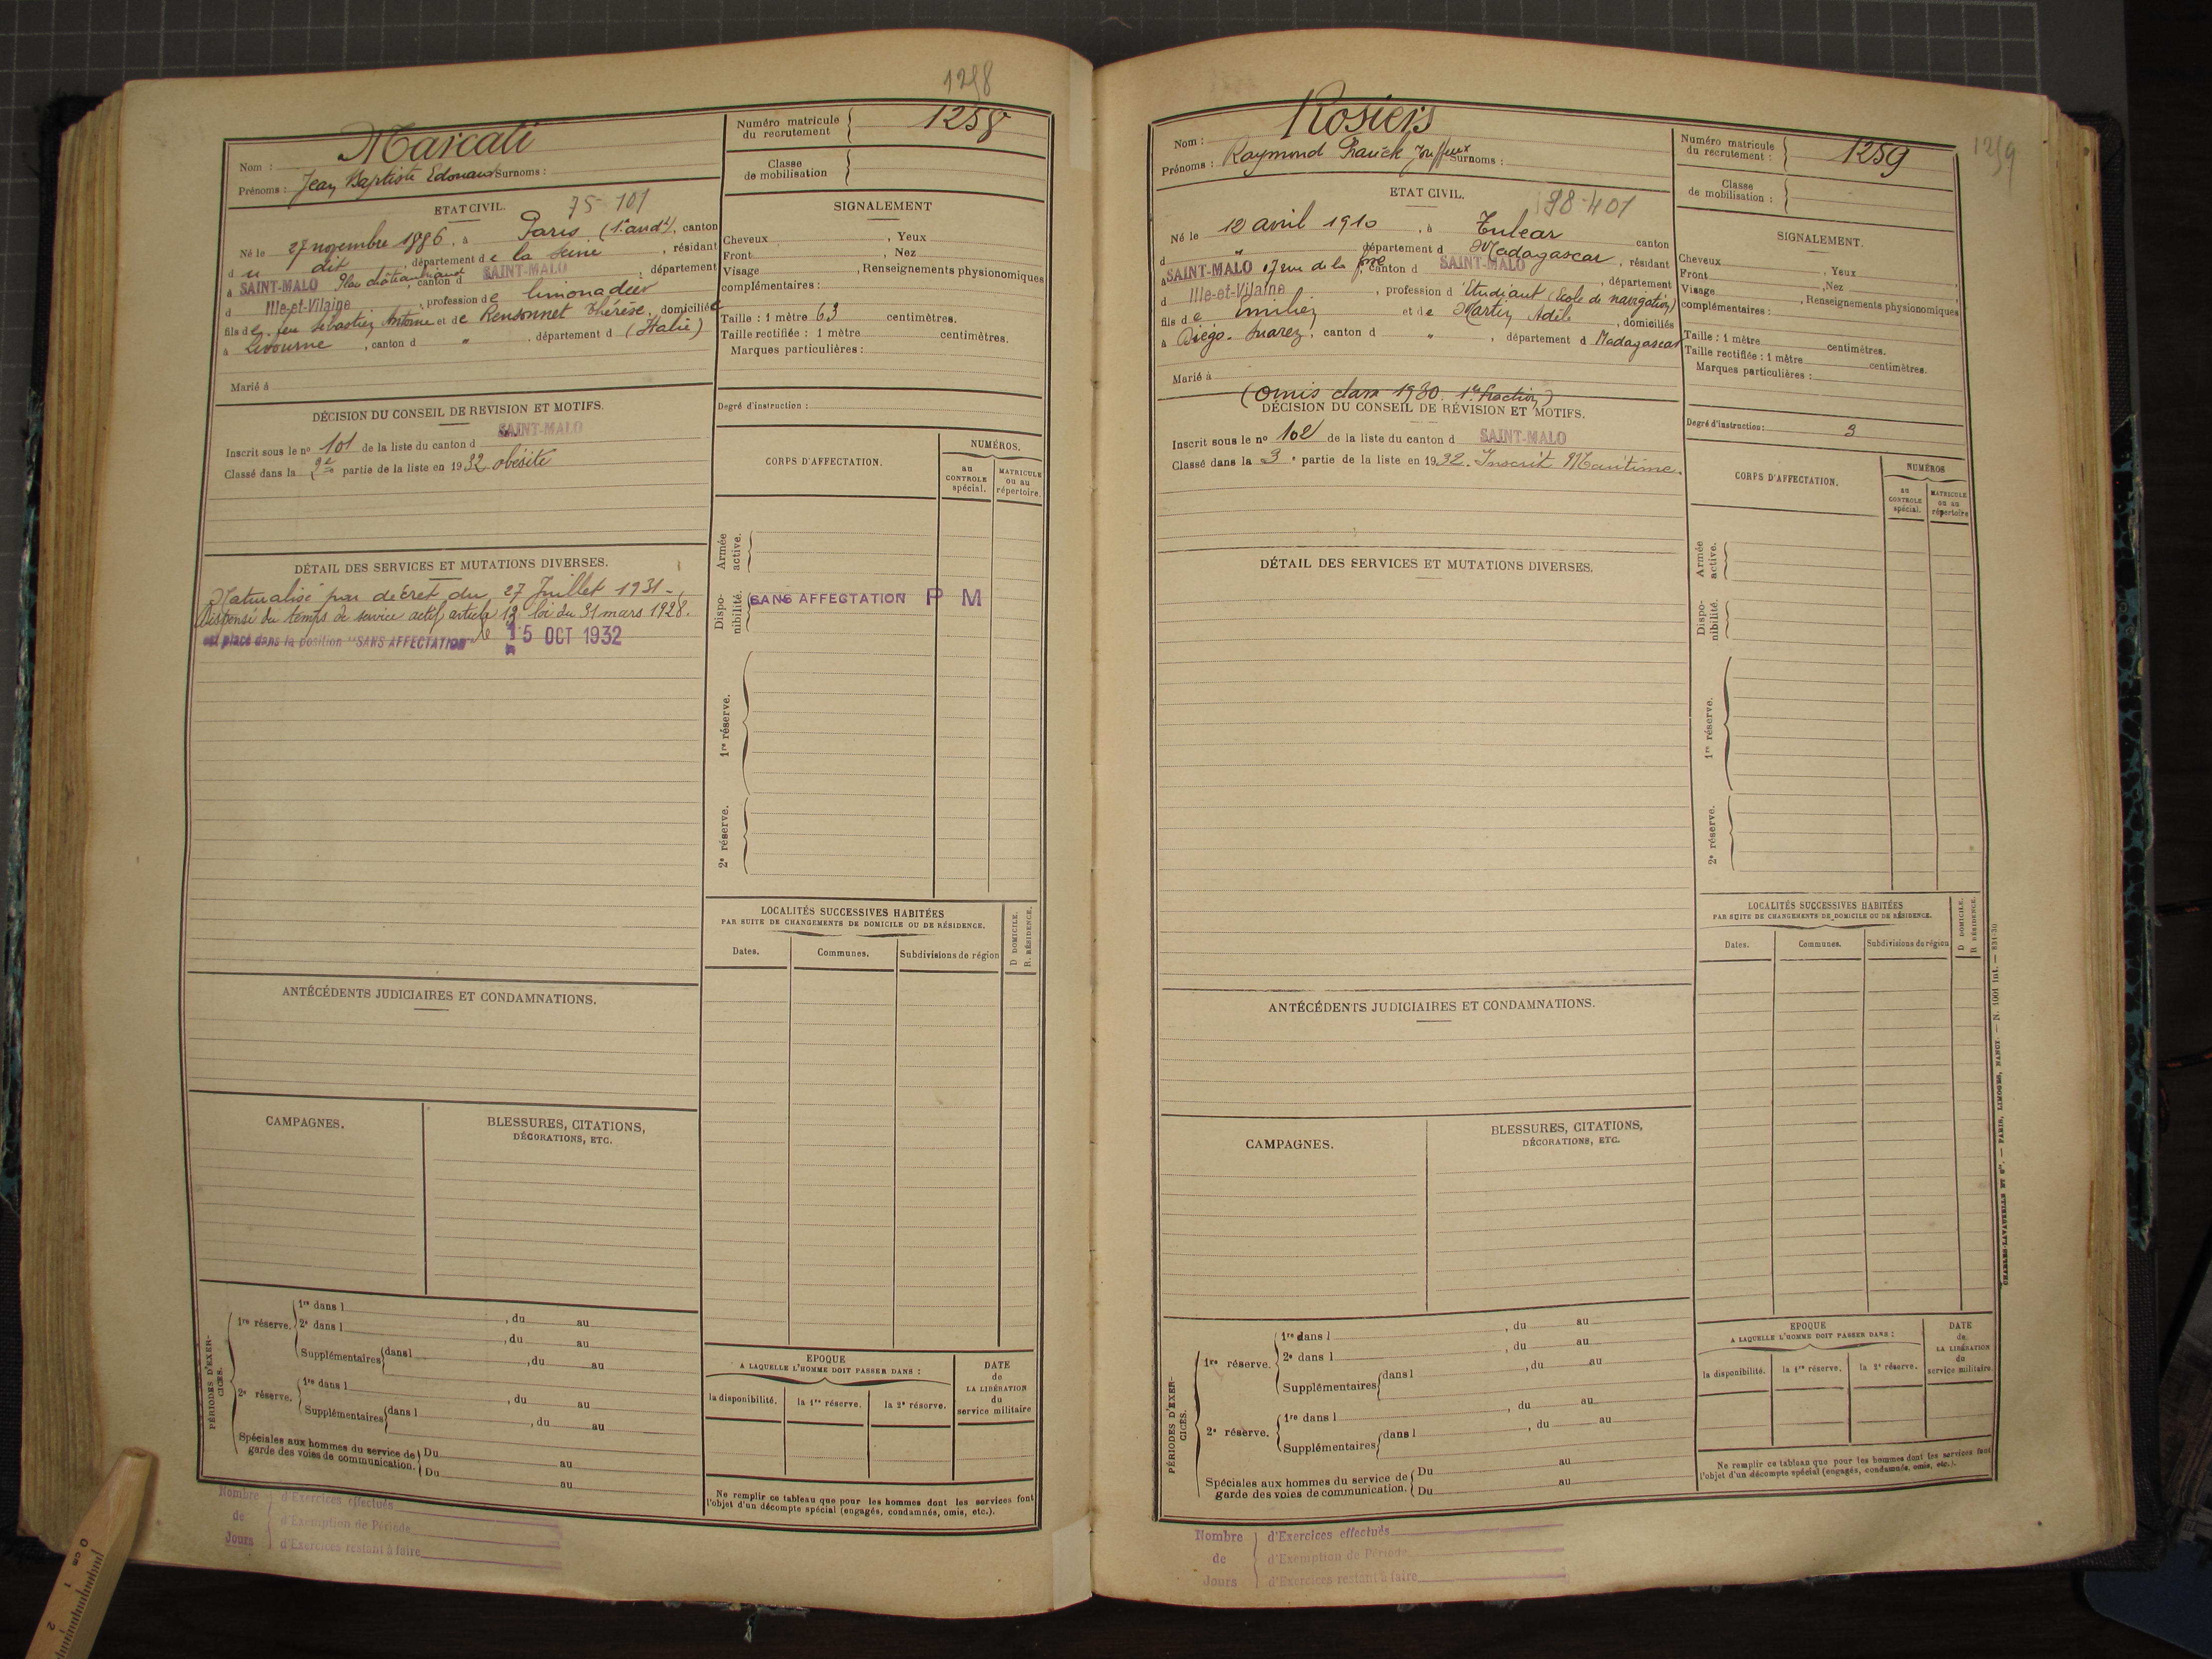 1258
Nom : Marcati
Prénoms : Jean Baptiste Edouard Surnoms :
Numéro matricule du recrutement 1258
Classe de mobilisation
ETAT CIVIL.
75-101
Né le 27 novembre 1886, à Paris (1er arrdt), canton
d u dit, département de la Seine, résidant
à SAINT-MALO Place châteaubriand, canton d SAINT-MALO, département
d Ille-et-Vilaine, profession de limonadier
fils de feu Sébastien Antoine et de Rensonnet Thérèse, domiciliés
à Livourne, canton d ", département d (Italie)
Marié à
SIGNALEMENT
Cheveux , Yeux
Front , Nez
Visage , Renseignements physionomiques
complémentaires :
Taille : 1 mètre 63 centimètres.
Taille rectifiée : 1 mètre centimètres.
Marques particulières :
DÉCISION DU CONSEIL DE REVISION ET MOTIFS.
Inscrit sous le no 101 de la liste du canton d SAINT-MALO
Classé dans la 2e partie de la liste en 1932 obésité
Degré d'instruction :
CORPS D'AFFECTATION.
NUMÉROS.
au CONTROLE spécial.
MATRICULE ou au répertoire.
DÉTAIL DES SERVICES ET MUTATIONS DIVERSES.
Naturalisé par décret du 27 Juillet 1931.
Dispensé du temps de service actif article 12 loi du 31 mars 1928.
est placé dans la position "SANS AFFECTATION" le 15 OCT 1932
Armée active.
Disponibilité. SANS AFFECTATION P M
1re réserve.
2e réserve.
LOCALITÉS SUCCESSIVES HABITÉES
PAR SUITE DE CHANGEMENTS DE DOMICILE OU DE RÉSIDENCE.
Dates. Communes. Subdivisions de région
D DOMICILE.
R. RÉSIDENCE.
ANTÉCÉDENTS JUDICIAIRES ET CONDAMNATIONS.
CAMPAGNES.
BLESSURES, CITATIONS,
DÉCORATIONS, ETC.
PÉRIODES D'EXERCICES.
1re réserve. 1re dans l , du au
2e dans l , du au
Supplémentaires dans l , du au
2e réserve. 1re dans l , du au
Supplémentaires dans l , du au
Spéciales aux hommes du service de garde des voies de communication. Du au
Du au
EPOQUE
A LAQUELLE L'HOMME DOIT PASSER DANS :
la disponibilité. la 1re réserve. la 2e réserve.
DATE de LA LIBÉRATION du service militaire
Ne remplir ce tableau que pour les hommes dont les services font
l'objet d'un décompte spécial (engagés, condamnés, omis, etc.).
Nombre de Jours
d'Exercices effectués
d'Exemption de Période
d'Exercices restant à faire
1259
Nom : Rosiers
Prénoms : Raymond Franck Surnoms :
Numéro matricule du recrutement : 1259
Classe de mobilisation :
ETAT CIVIL.
98-401
Né le 12 avril 1910, à Tulear canton
d " département d Madagascar, résidant
à SAINT-MALO, 17 rue de la , canton d SAINT-MALO, département
d Ille-et-Vilaine, profession d'Etudiant (Ecole de navigation)
fils de Emilien et de Martin Adèle, domiciliés
à Diégo-Suarez, canton d ", département d Madagascar
Marié à
SIGNALEMENT.
Cheveux , Yeux
Front , Nez
Visage , Renseignements physionomiques
complémentaires :
Taille : 1 mètre centimètres.
Taille rectifiée : 1 mètre centimètres.
Marques particulières :
(Omis classe 1930. 1re fraction)
DÉCISION DU CONSEIL DE RÉVISION ET MOTIFS.
Inscrit sous le no 102 de la liste du canton d SAINT-MALO
Classé dans la 3e partie de la liste en 1932. Inscrit Maritime.
Degré d'instruction : 3
CORPS D'AFFECTATION.
NUMÉROS
au CONTROLE spécial.
MATRICULE ou au répertoire
DÉTAIL DES SERVICES ET MUTATIONS DIVERSES.
Armée active.
Disponibilité.
1re réserve.
2e réserve.
LOCALITÉS SUCCESSIVES HABITÉES
PAR SUITE DE CHANGEMENTS DE DOMICILE OU DE RÉSIDENCE.
Dates. Communes. Subdivisions de région
D DOMICILE.
R RÉSIDENCE.
ANTÉCÉDENTS JUDICIAIRES ET CONDAMNATIONS.
CAMPAGNES.
BLESSURES, CITATIONS,
DÉCORATIONS, ETC.
PÉRIODES D'EXERCICES.
1re réserve. 1re dans l , du au
2e dans l , du au
Supplémentaires dans l , du au
2e réserve. 1re dans l , du au
Supplémentaires dans l , du au
Spéciales aux hommes du service de garde des voies de communication. Du au
Du au
EPOQUE
A LAQUELLE L'HOMME DOIT PASSER DANS :
la disponibilité. la 1re réserve. la 2e réserve.
DATE de LA LIBÉRATION du service militaire
Ne remplir ce tableau que pour les hommes dont les services font
l'objet d'un décompte spécial (engagés, condamnés, omis, etc.).
CHARLES-LAVAUZELLE ET Cie. — PARIS, LIMOGES, NANCY. — N. 1001 Int. — 831-30
Nombre de Jours
d'Exercices effectués
d'Exemption de Période
d'Exercices restant à faire
0 cm 1 2